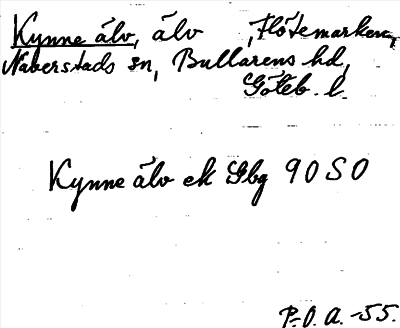 Kynne älv, älv , Flötemarken,
Naverstads sn, Bullarens hd,
Göteb. l.
Kynne älv ek Gbg 90 SO
P.O.A. -55.